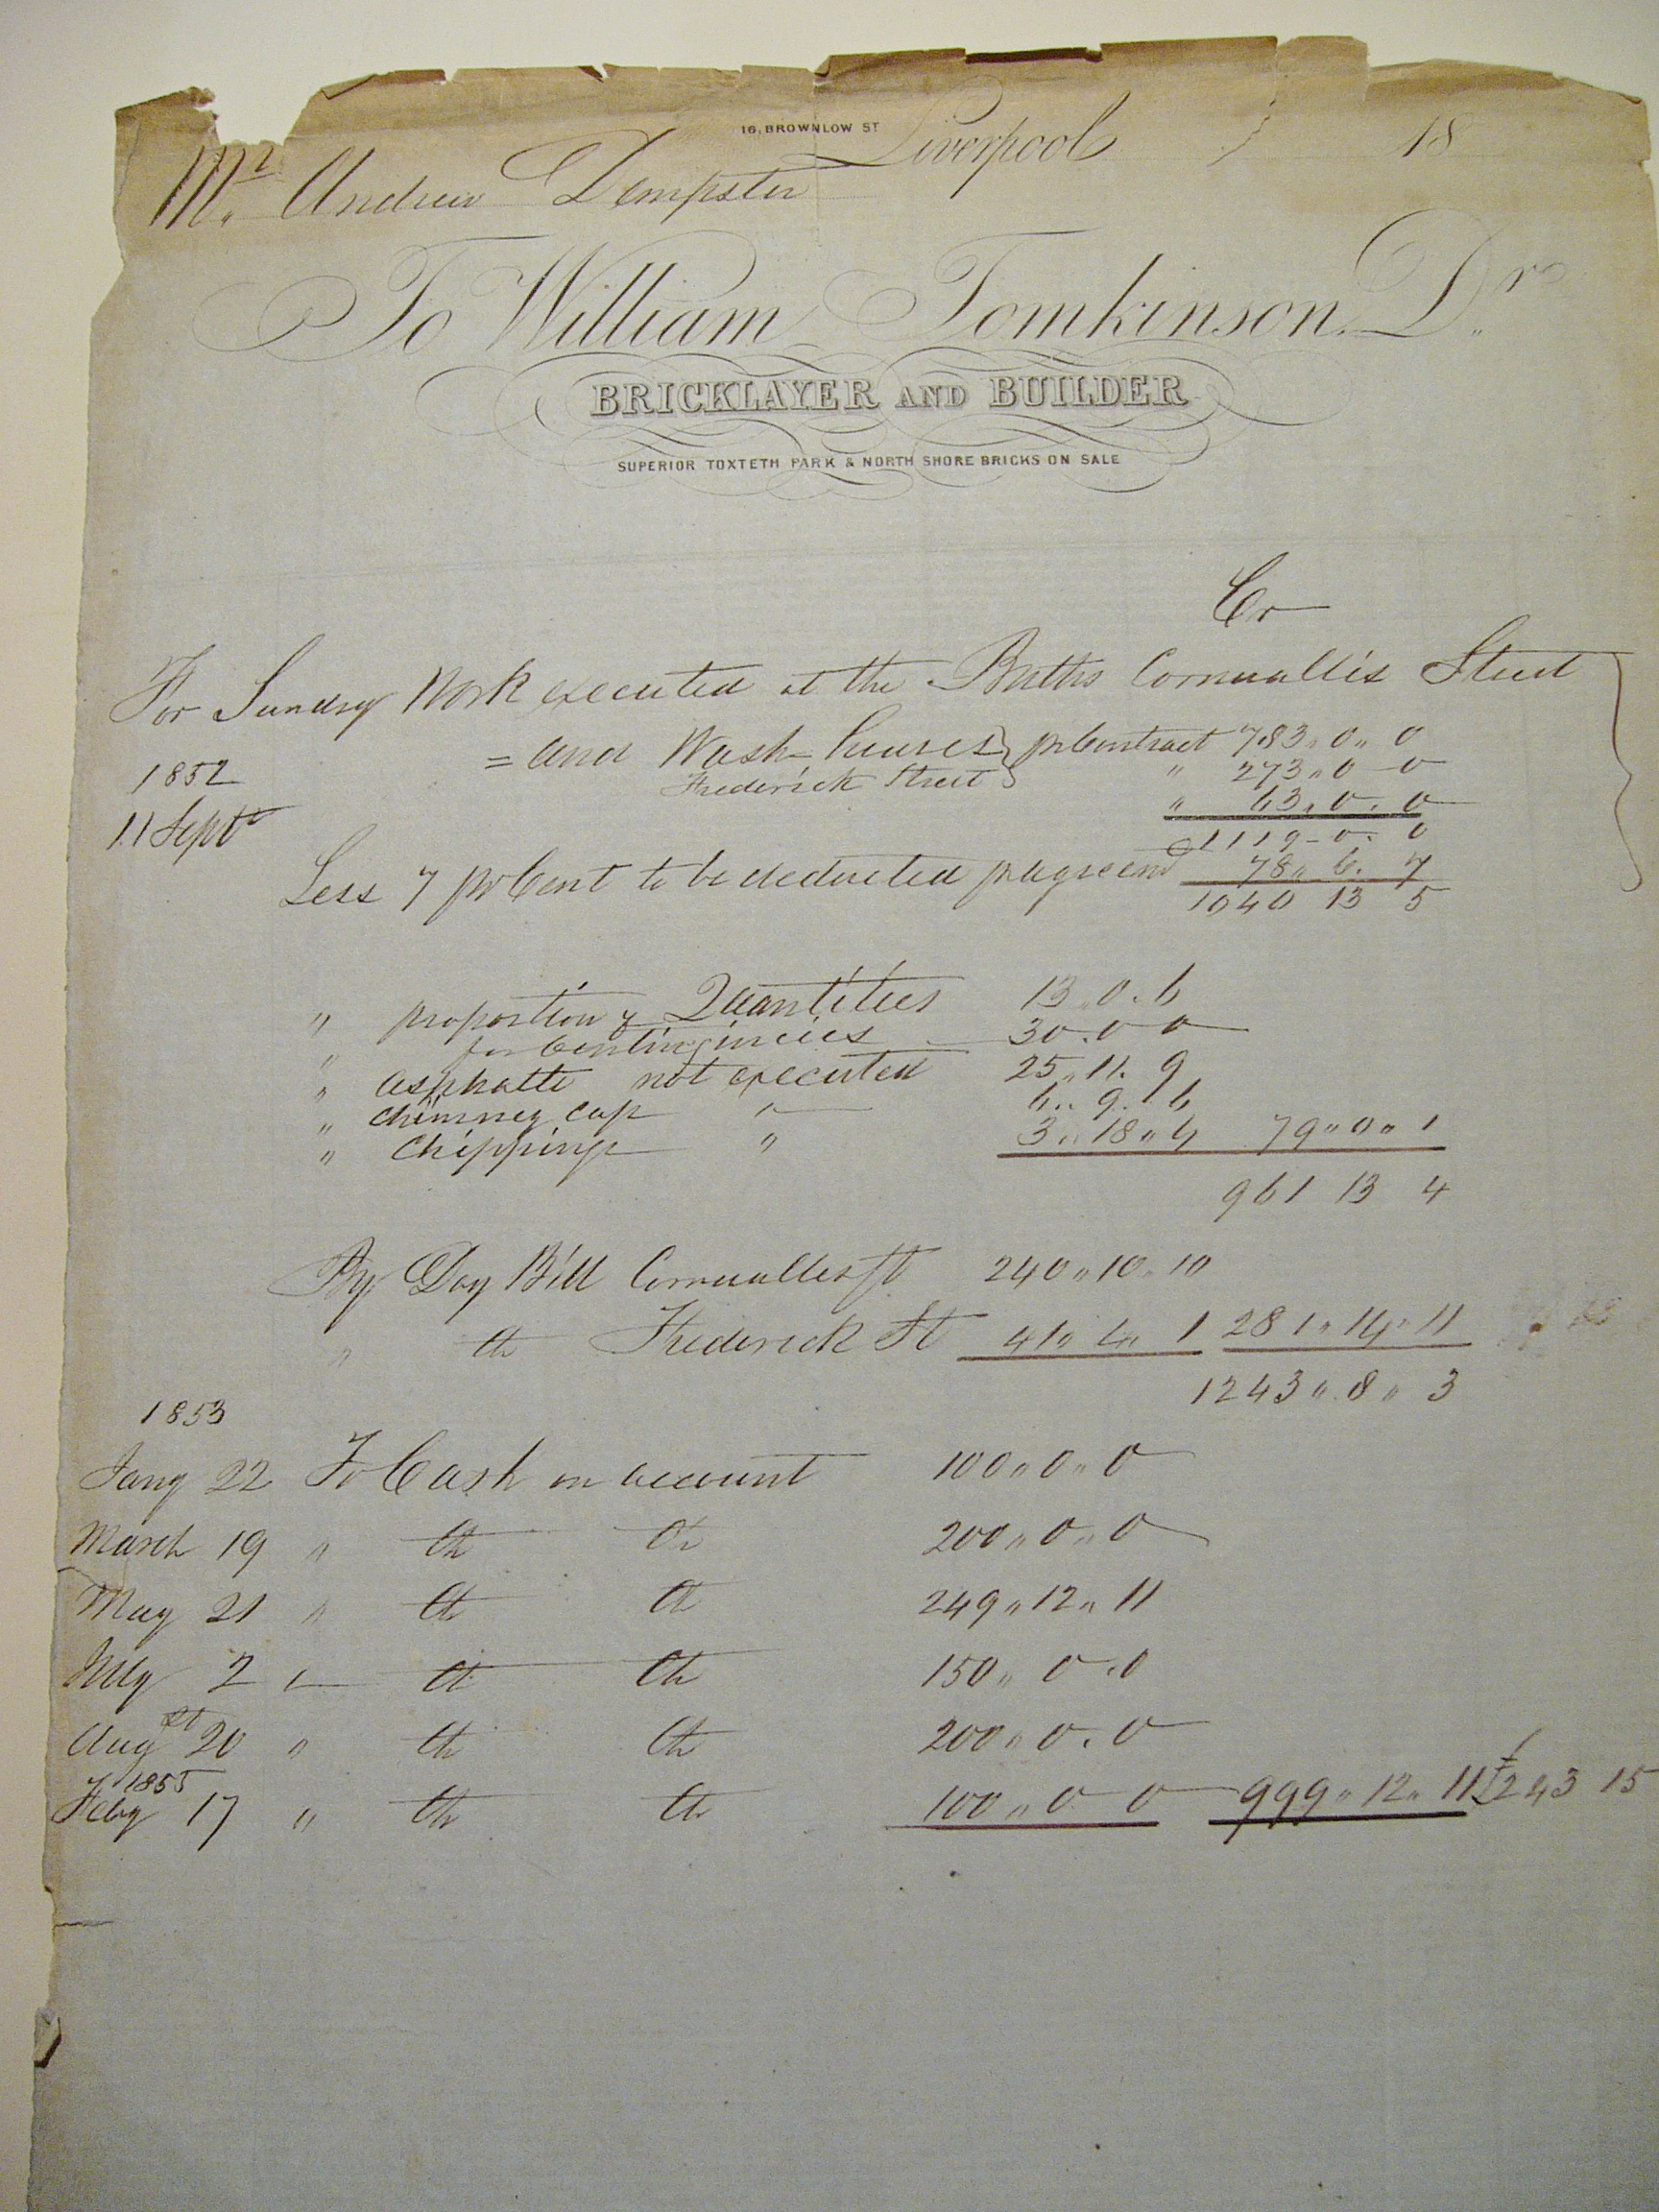 16, BROWNLOW ST Liverpool 18
Mr. Andrew Dempster
To William Tomkinson. Dr.
BRICKLAYER AND BUILDER
SUPERIOR TOXTETH PARK & NORTH SHORE BRICKS ON SALE
Cr
For Sundry Work executed at the Baths Cornwallis Street
= and Wash-houses } pr Contract 783 " 0 " 0
1852 Frederick Street } " 273 " 0 - 0
11 Septr " 63 " 0 . 0
1119 - 0 . 0
Less 7 pr Cent to be deducted pr agreemt 78 " 6 . 7
1040 13 5
" proportion of Quantities 13 " 0 . 6
" for Contingincies 30 . 0 0
" asphalte not executed 25 " 11 . 9
" Chimney Cap " 6 " 9 . 6
" Chippings " 3 " 18 " 4 79 " 0 " 1
961 13 4
By Day Bill Cornwallis St 240 " 10 " 10
" do Frederick St 41 " 4 " 1 281 " 14 " 11
1243 " 8 " 3
1853
Jany 22 To Cash on account 100 " 0 " 0
March 19 " do do 200 " 0 " 0
May 21 " do do 249 " 12 " 11
July 2 " do do 150 " 0 . 0
Augst 20 " do do 200 " 0 . 0
1855
Feby 17 " do do 100 " 0 0 999 " 12 " 11 £243 15